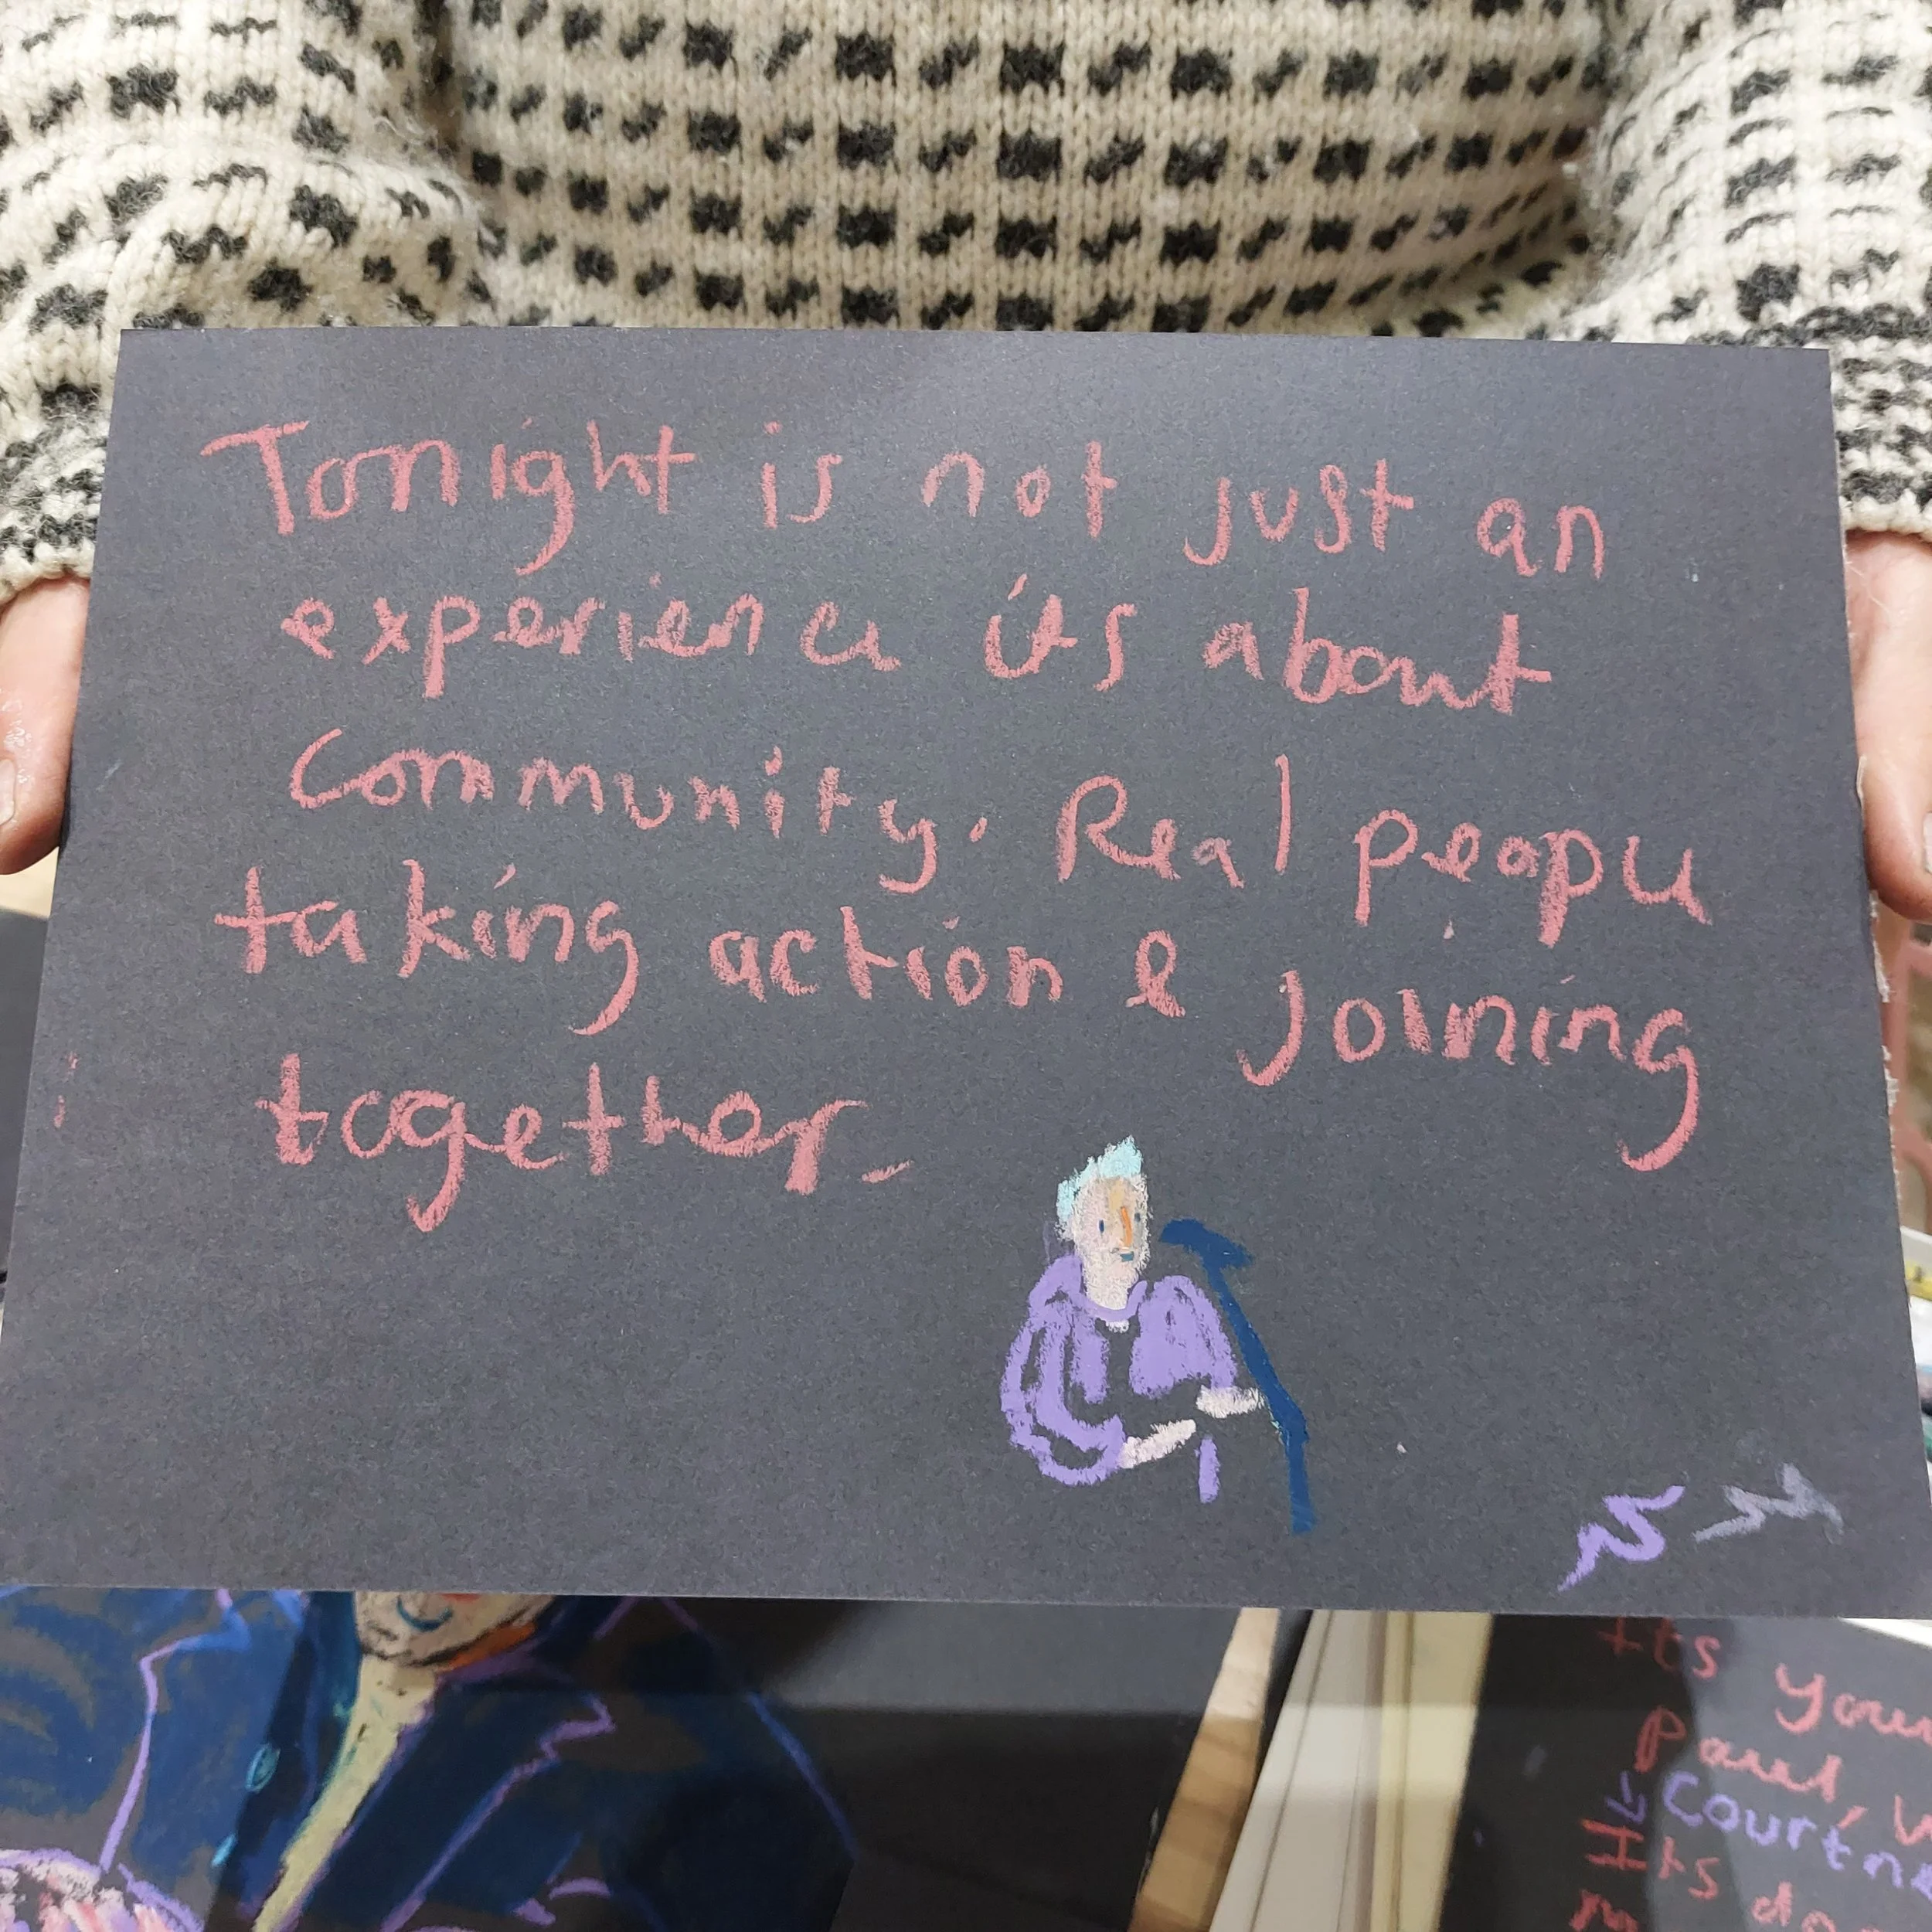 Tonight is not just an
experience its about
Community. Real people
taking action & Joining
together.
Its
Paul,
Courtne
Its